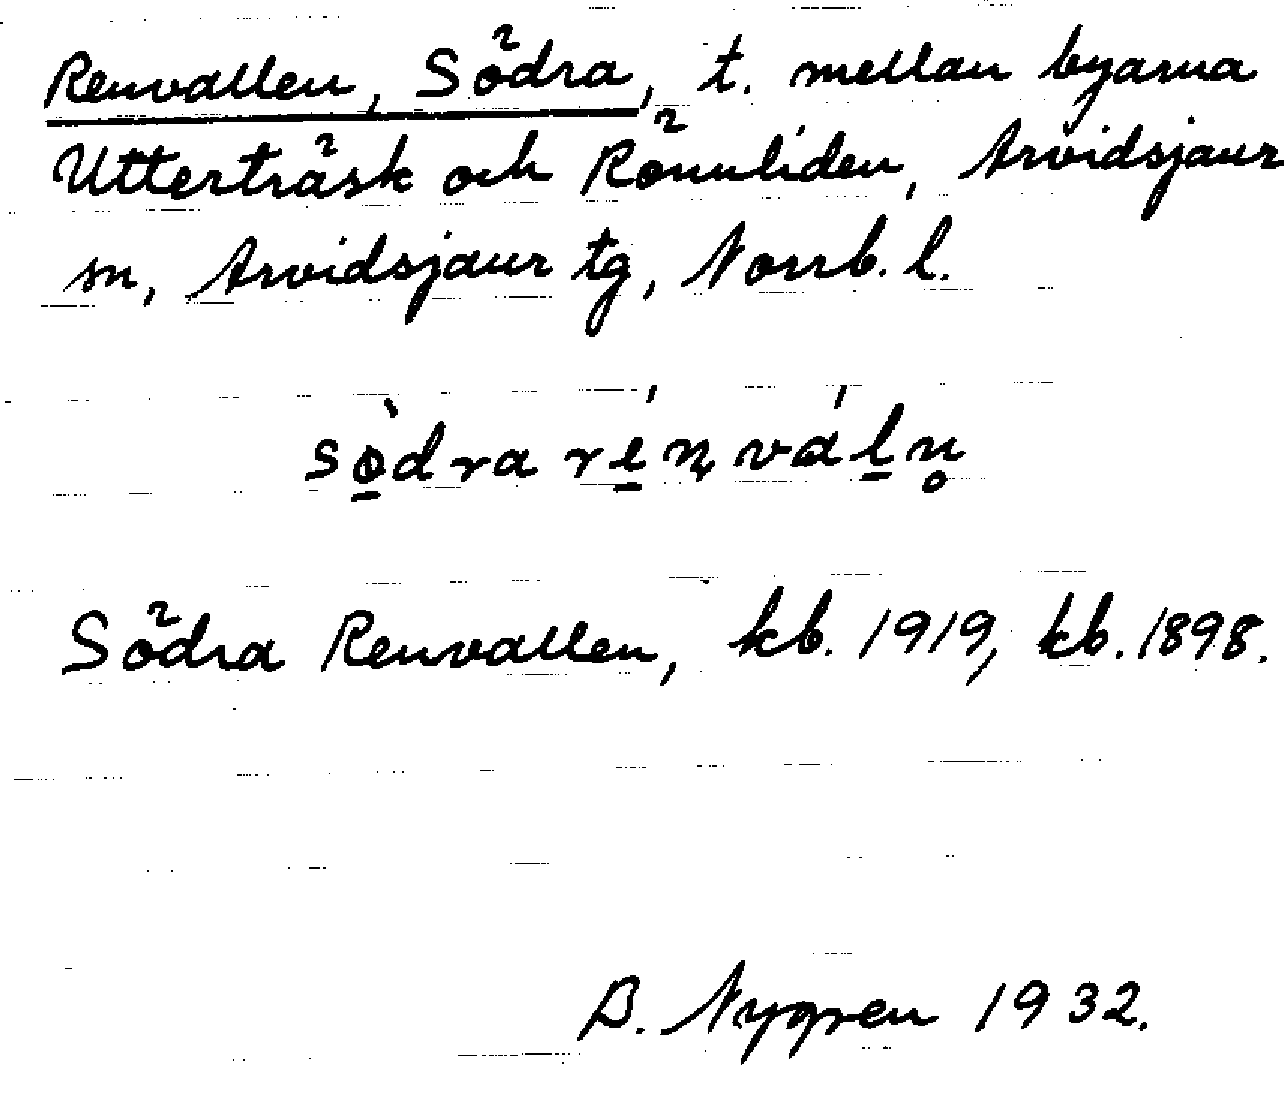 Renvallen, Södra, t. mellan byarna
Utterträsk och Rönnliden, Arvidsjaur
sn, Arvidsjaur tg, Norrb. l.
sö̀dra rénváln̥
Södra Renvallen, kb. 1919, kb. 1898.
B. Nygren 1932.